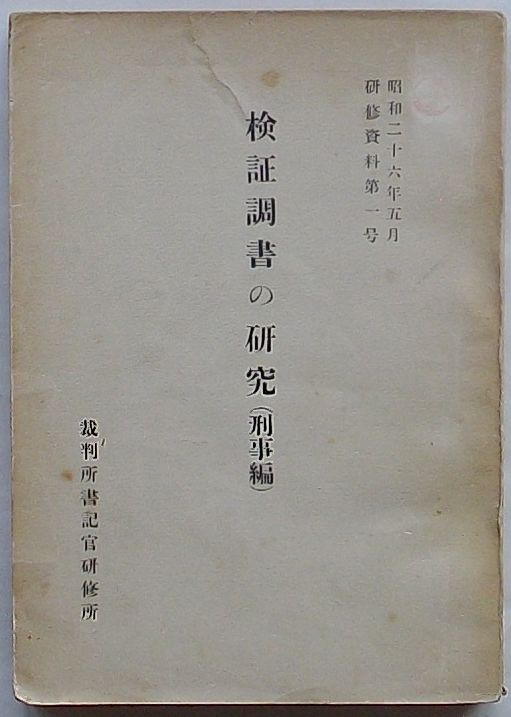 昭和二十六年五月
研修資料第一号
検証調書の研究（刑事編）
裁判所書記官研修所